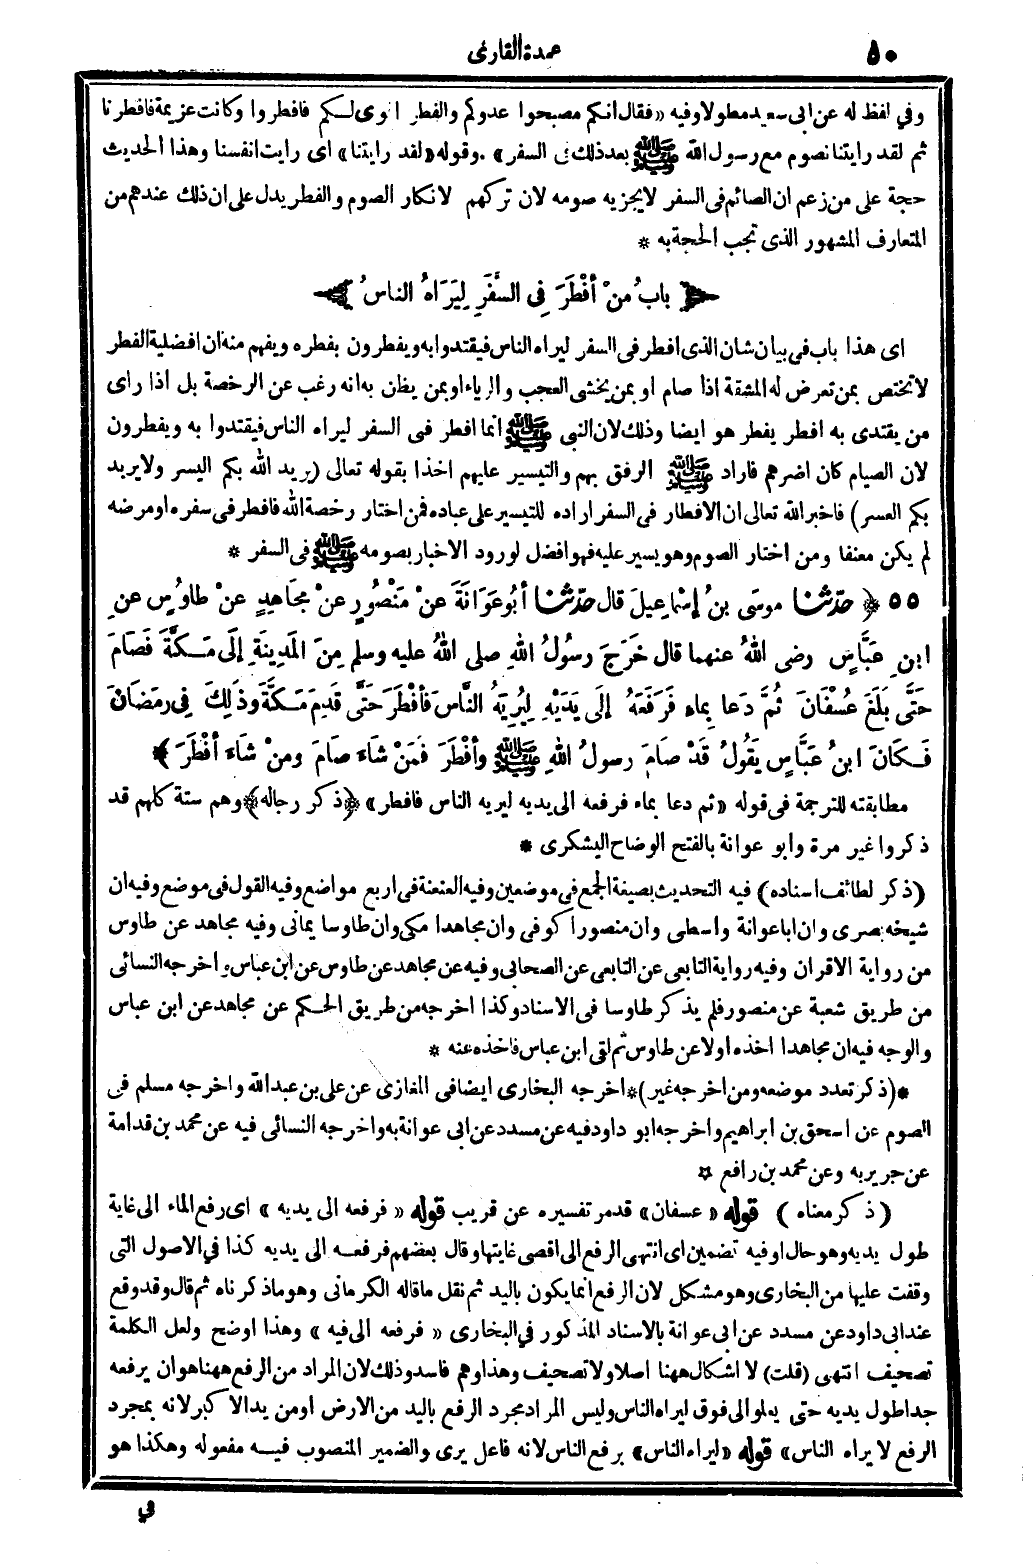 ٥٠
عمدة القارئ
وفي لفظ له عن ابى سعيد مطولا وفيه «فقال انكم مصبحوا عدوكم والفطر اقوى لكم فافطروا وكانت عزيمة فافطرنا
ثم لقد رايتنا نصوم مع رسول الله ﷺ بعد ذلك فى السفر» . وقوله «لقد رايتنا» اى رايت انفسنا وهذا الحديث
حجة على من زعم ان الصائم فى السفر لا يجزيه صومه لان تركهم لانكار الصوم والفطر يدل على ان ذلك عندهم من
المتعارف المشهور الذى تجب الحجة به *
﴿ بابُ منْ أَفْطَرَ فِى السَّفَرِ لِيَرَاهُ الناسُ ﴾
اى هذا باب فى بيان شان الذى افطر فى السفر ليراه الناس فيقتدوا به ويفطرون بفطره ويفهم منه ان افضلية الفطر
لا تختص بمن تعرض له المشقة اذا صام او بمن يخشى العجب والرياء او بمن يظن به انه رغب عن الرخصة بل اذا راى
من يقتدى به افطر يفطر هو ايضا وذلك لان النبى ﷺ انما افطر فى السفر ليراه الناس فيقتدوا به ويفطرون
لان الصيام كان اضرهم فاراد ﷺ الرفق بهم والتيسير عليهم اخذا بقوله تعالى (يريد الله بكم اليسر ولا يريد
بكم العسر) فاخبر الله تعالى ان الافطار فى السفر اراده للتيسير على عباده فمن اختار رخصة الله فافطر فى سفره او مرضه
لم يكن معنفا ومن اختار الصوم وهو يسير عليه فهو افضل لورود الاخبار بصومه ﷺ فى السفر *
٥٥ ﴿ حدّثنا موسَى بنُ إِسْمَاعِيلَ قال حدّثنا أبُو عَوَانَةَ عنْ مَنْصُورٍ عنْ مجَاهِدٍ عنْ طاوُسٍ عنِ
ابنِ عَبَّاسٍ رضى اللهُ عنهما قال خَرَجَ رسُولُ اللهِ صلى اللهُ عليه وسلم مِنَ المَدِينَةِ إلَى مَكَّةَ فَصَامَ
حَتَّى بَلَغَ عُسْفَانَ ثُمَّ دَعا بِماءٍ فَرَفَعَهُ إلَى يَدَيْهِ لِيُرِيَهُ النَّاسَ فَأفْطَرَ حَتَّى قَدِمَ مَكَّةَ وَذَلِكَ فِى رمَضَانَ
فَكَانَ ابنُ عَبَّاسٍ يَقُولُ قَدْ صَامَ رسولُ اللهِ ﷺ وأفْطَرَ فَمَنْ شَاءَ صَامَ ومنْ شَاءَ أفْطَرَ ﴾
مطابقته للترجمة فى قوله «ثم دعا بماء فرفعه الى يديه ليريه الناس فافطر» ﴿ذكر رجاله﴾ وهم ستة كلهم قد
ذكروا غير مرة وابو عوانة بالفتح الوضاح اليشكرى *
(ذكر لطائف اسناده) فيه التحديث بصيغة الجمع فى موضعين وفيه العنعنة فى اربع مواضع وفيه القول فى موضع وفيه ان
شيخه بصرى وان ابا عوانة واسطى وان منصورا كوفى وان مجاهدا مكى وان طاوسا يمانى وفيه مجاهد عن طاوس
من رواية الاقران وفيه رواية التابعى عن التابعى عن الصحابى وفيه عن مجاهد عن طاوس عن ابن عباس واخرجه النسائى
من طريق شعبة عن منصور فلم يذكر طاوسا فى الاسناد وكذا اخرجه من طريق الحكم عن مجاهد عن ابن عباس
والوجه فيه ان مجاهدا اخذه اولا عن طاوس ثم لقى ابن عباس فاخذه عنه *
*(ذكر تعدد موضعه ومن اخرجه غيره)* اخرجه البخارى ايضا فى المغازى عن على بن عبدالله واخرجه مسلم فى
الصوم عن اسحق بن ابراهيم واخرجه ابو داود فيه عن مسدد عن ابى عوانة به واخرجه النسائى فيه عن محمد بن قدامة
عن جرير به وعن محمد بن رافع *
(ذكر معناه) قوله «عسفان» قد مر تفسيره عن قريب قوله «فرفعه الى يديه» اى رفع الماء الى غاية
طول يديه وهو حال او فيه تضمين اى انتهى الرفع الى اقصى غايتها وقال بعضهم فرفعه الى يديه كذا في الاصول التى
وقفت عليها من البخارى وهو مشكل لان الرفع انما يكون باليد ثم نقل ما قاله الكرمانى وهو ما ذكرناه ثم قال وقد وقع
عند ابى داود عن مسدد عن ابى عوانة بالاسناد المذكور في البخارى «فرفعه الى فيه» وهذا اوضح ولعل الكلمة
تصحيف انتهى (قلت) لا اشكال ههنا اصلا ولا تصحيف وهذا وهم فاسد وذلك لان المراد من الرفع ههنا هو ان يرفعه
جدا طول يديه حتى يعلو الى فوق ليراه الناس وليس المراد مجرد الرفع باليد من الارض او من يد الاكبر لانه بمجرد
الرفع لا يراه الناس» قوله «ليراه الناس» برفع الناس لانه فاعل يرى والضمير المنصوب فيه مفعوله وهكذا هو
في